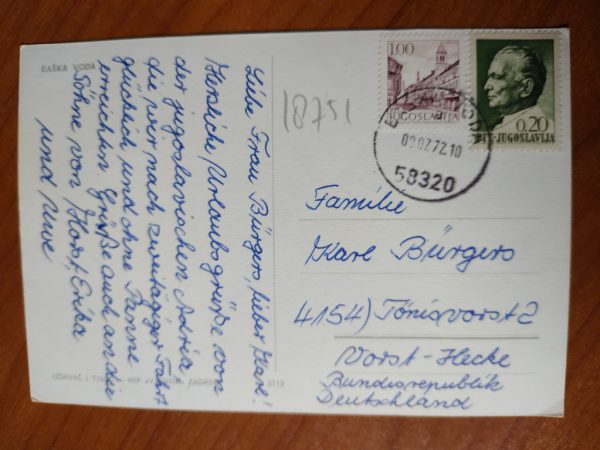 BAŠKA VODA
Liebe Frau Bürgers, lieber Karl!
Herzliche Urlaubsgrüße von
der jugoslavischen Adria
die wir nach zweitägiger Fahrt
glücklich und ohne Panne
erreichten. Grüße auch an die
Söhne von Horst, Erika
und Uwe
18751
1.00
JUGOSLAVIJA
0,20
PTT-JUGOSLAVIJA
09.07.72.10
58320
Familie
Karl Bürgers
4154) Tönisvorst 2
Vorst-Hecke
Bundesrepublik
Deutschland
IZDAVAČ I NIP ZAGREB 3112